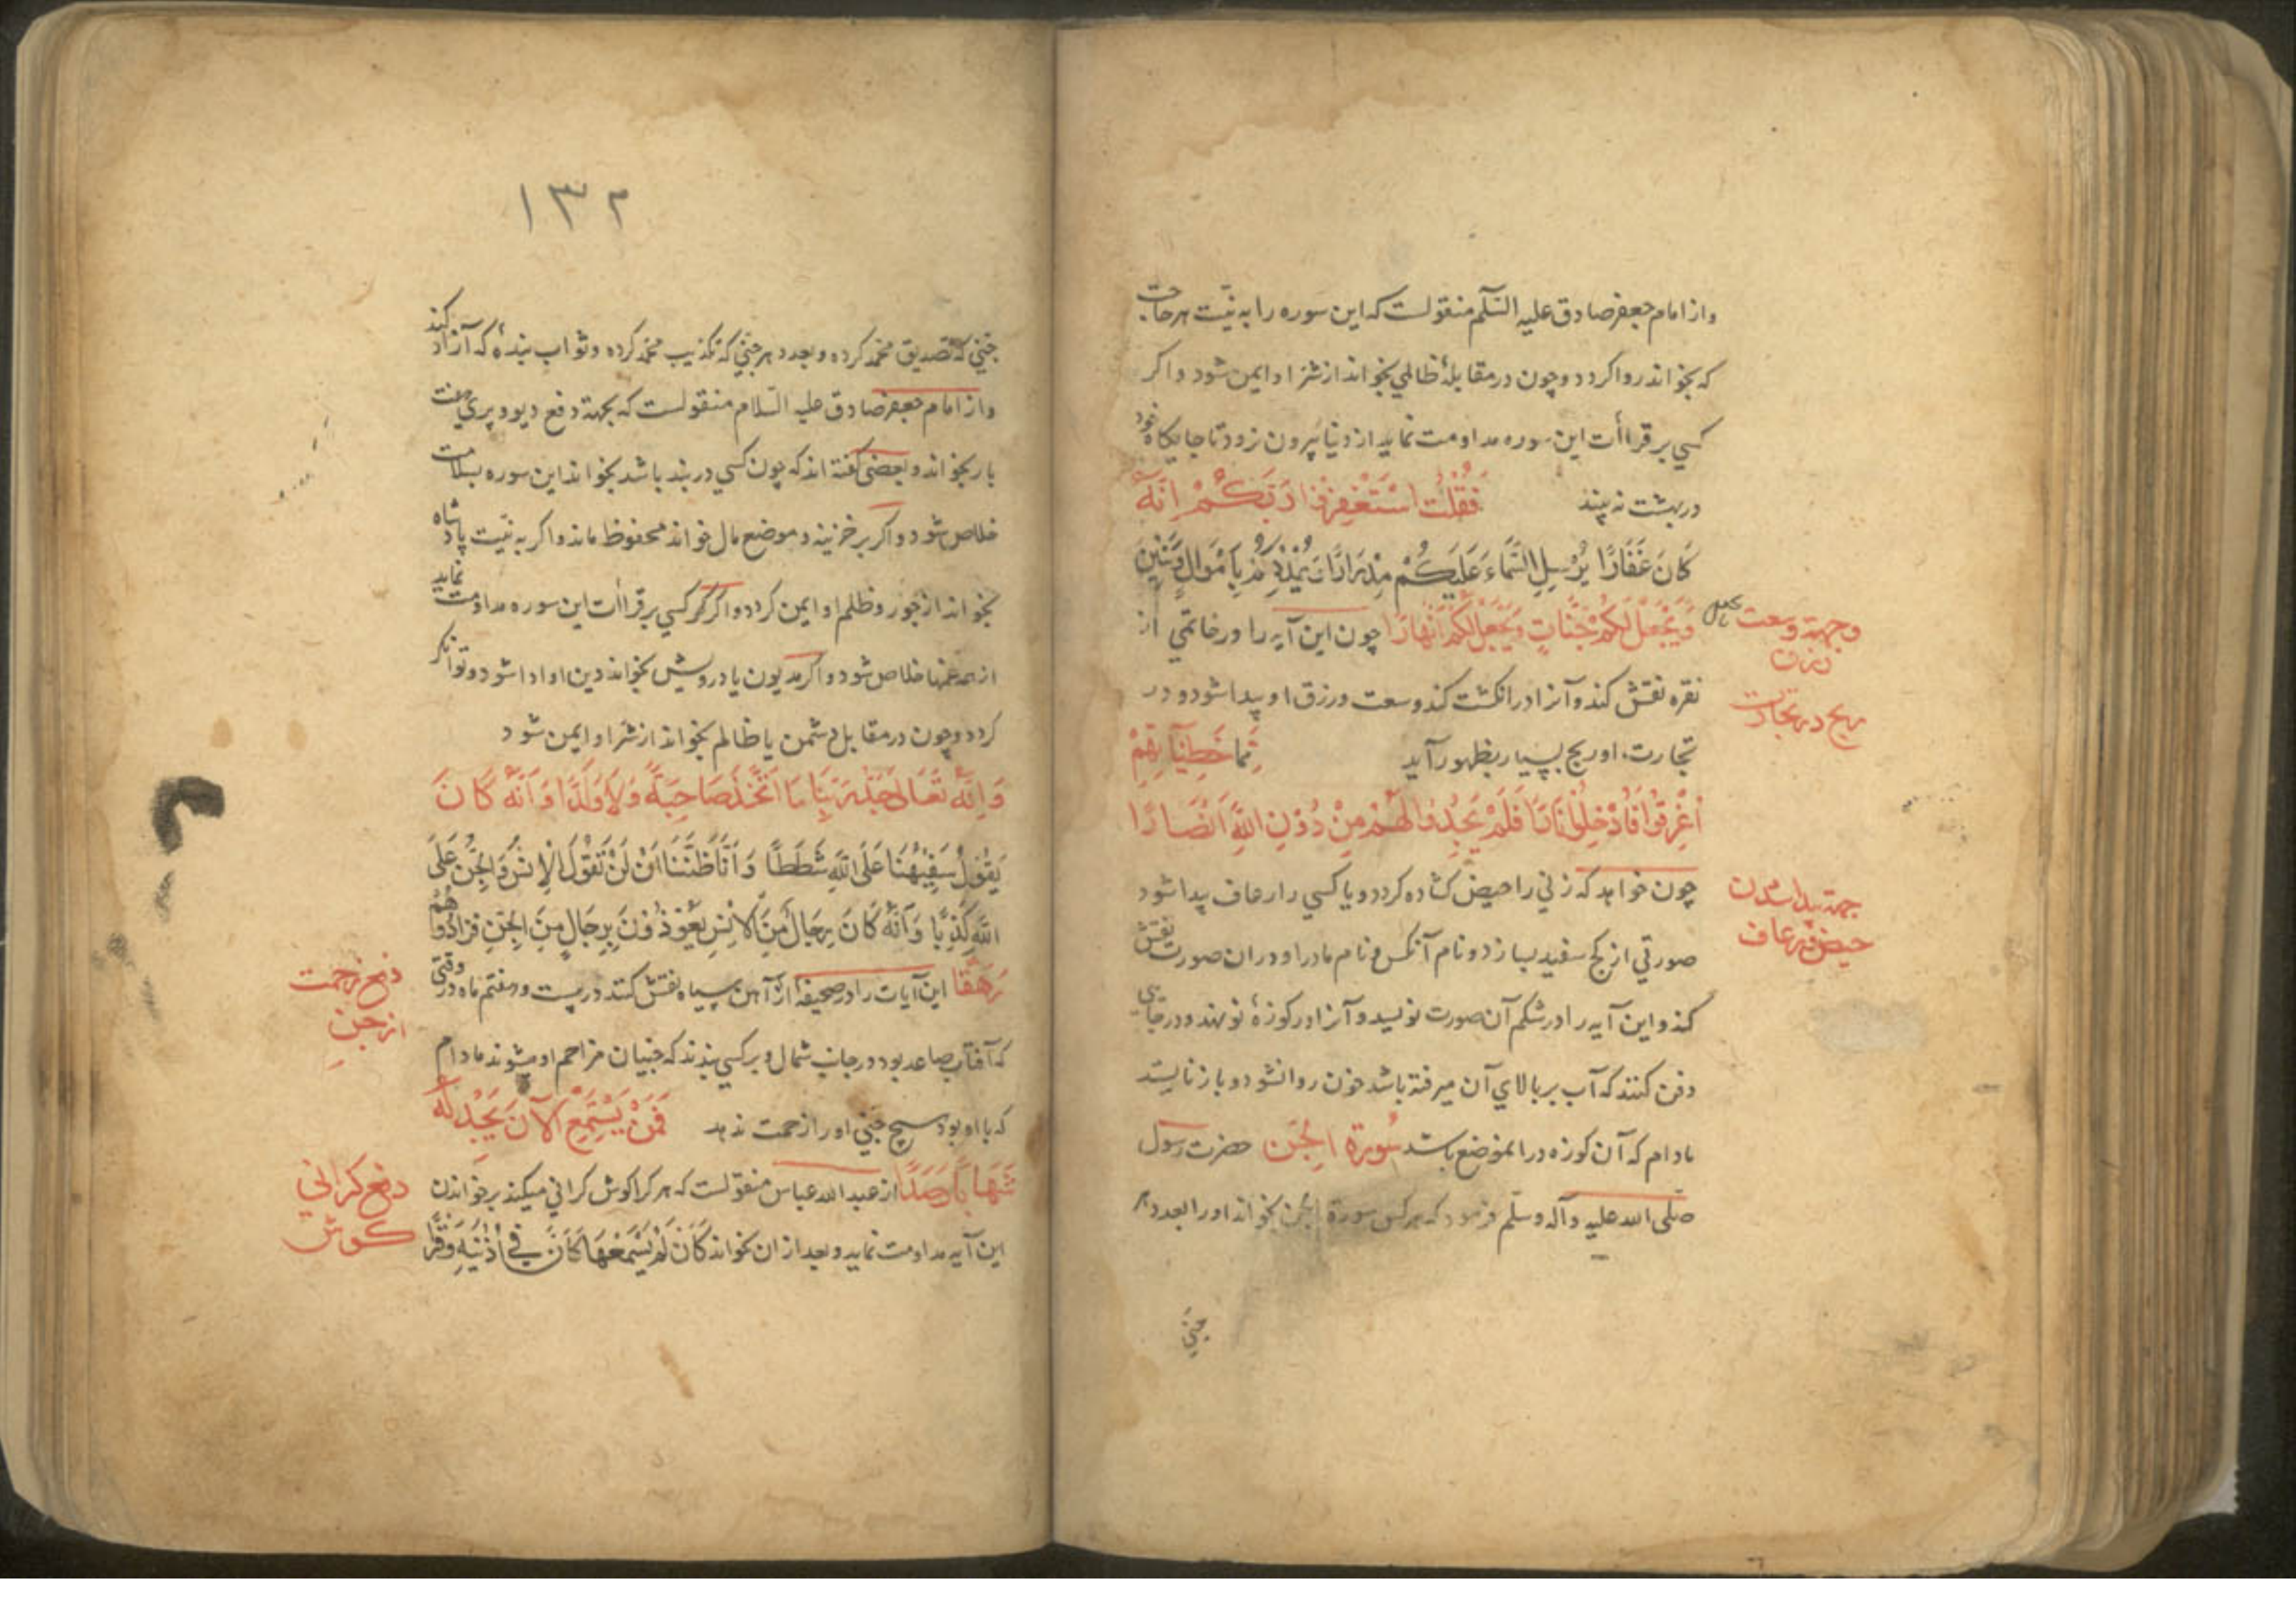 واز امام جعفر صادق علیه السّلم منقولست که این سوره را به نیّت هر حاجت
که بخواند روا کردد و چون در مقابلهٔ ظالمي بخواند از شرّ او ایمن شود و اکر
کسي بر قراأت این سوره مداومت نماید از دنیا بیرون نرود تا جایکاه خود
در بهشت نه بیند فَقُلْتُ اسْتَغْفِرُوا رَبَّكُمْ اِنَّهُ
كَانَ غَفَّارًا يُرْسِلِ السَّمَاءَ عَلَيْكُمْ مِدْرَارًا وَيُمْدِدْكُمْ بِاَمْوَالٍ وَبَنِينَ
وَيَجْعَلْ لَكُمْ جَنَّاتٍ وَيَجْعَلْ لَكُمْ اَنْهَارًا چون این آیه را در خاتمي از
وجهة وسعت
رزق
نقره نقش کند و آنرا در انکشت کند وسعت در رزق او پیدا شود و در
ربح در تجارت
تجارت او ربح بسیار بظهور آید مِمَّا خَطِيئَاتِهِمْ
اُغْرِقُوا فَاُدْخِلُوا نَارًا فَلَمْ يَجِدُوا لَهُمْ مِنْ دُوْنِ اللّٰهِ اَنْصَارًا
چون خواهد که زني را حیض کشاده کردد و یا کسي را رعاف پیدا شود
جهة پیدا شدن
حیض و رعاف
صورتي از کج سفید بسازد و نام آنکس و نام مادر او در ان صورت نقش
کند و این آیه را در شکم آن صورت نویسد و آنرا در کوزهٔ نو نهند و در جایي
دفن کنند که آب بر بالاي آن میرفته باشد خون روان شود و باز نایستد
مادام که آن کوزه در انموضع باشد سُورة الجنّ حضرت رسول
صلّی الله علیه وآله وسلّم فرمود که هر کس سورة الجن بخواند او را بعدد هر
جنّي
۱۳۲
جنّي که تصدیق محمّد کرده و بعدد هر جنّي که تکذیب محمّد کرده و ثواب بندهٔ که آزاد کند
واز امام جعفر صادق علیه السّلام منقولست که بجهة دفع دیو و پري هفت
بار بخواند و بعضی کفته اند که چون کسي در بند باشد بخواند این سوره بسلامت
خلاص شود و اکر بر خزینه و موضع مال خواند محفوظ ماند و اکر به نیّت پادشاه
بخواند از جور و ظلم او ایمن کردد و اکر کسي بر قراأت این سوره مداومت نماید
از همه غمها خلاص شود و اکر مدیون یا درویش بخواند دین او ادا شود و توانکر
کردد و چون در مقابل دشمن یا ظالم بخواند از شرّ او ایمن شود
وَاَنَّهُ تَعَالٰى جَدُّ رَبِّنَا مَا اتَّخَذَ صَاحِبَةً وَلَا وَلَدًا وَاَنَّهُ كَانَ
يَقُوْلُ سَفِيْهُنَا عَلَى اللّٰهِ شَطَطًا وَاَنَّا ظَنَنَّا اَنْ لَنْ تَقُوْلَ الْاِنْسُ وَالْجِنُّ عَلَى
اللّٰهِ كَذِبًا وَاَنَّهُ كَانَ رِجَالٌ مِنَ الْاِنْسِ يَعُوْذُوْنَ بِرِجَالٍ مِنَ الْجِنِّ فَزَادُوْهُمْ
رَهَقًا این آیات را در صحیفهٔ از آهن سیاه نقش کنند در بیست و هفتم ماه در وقتي
دفع زحمت
از جنّ
که آفتاب صاعد بود در جانب شمال و بر کسي بندند که جنیان مزاحم او میشوند مادام
که با او بود هیچ جنّي او را زحمت ندهد فَمَنْ يَسْتَمِعِ الْآنَ يَجِدْ لَهُ
شِهَابًا رَصَدًا از عبد الله عباس منقولست که هر کرا کوش کراني میکند بر خواندن
دفع کراني
کوش
این آیه مداومت نماید و بعد از ان بخواند كَاَنْ لَمْ يَسْمَعْهَا كَاَنَّ فِي اُذُنَيْهِ وَقْرًا